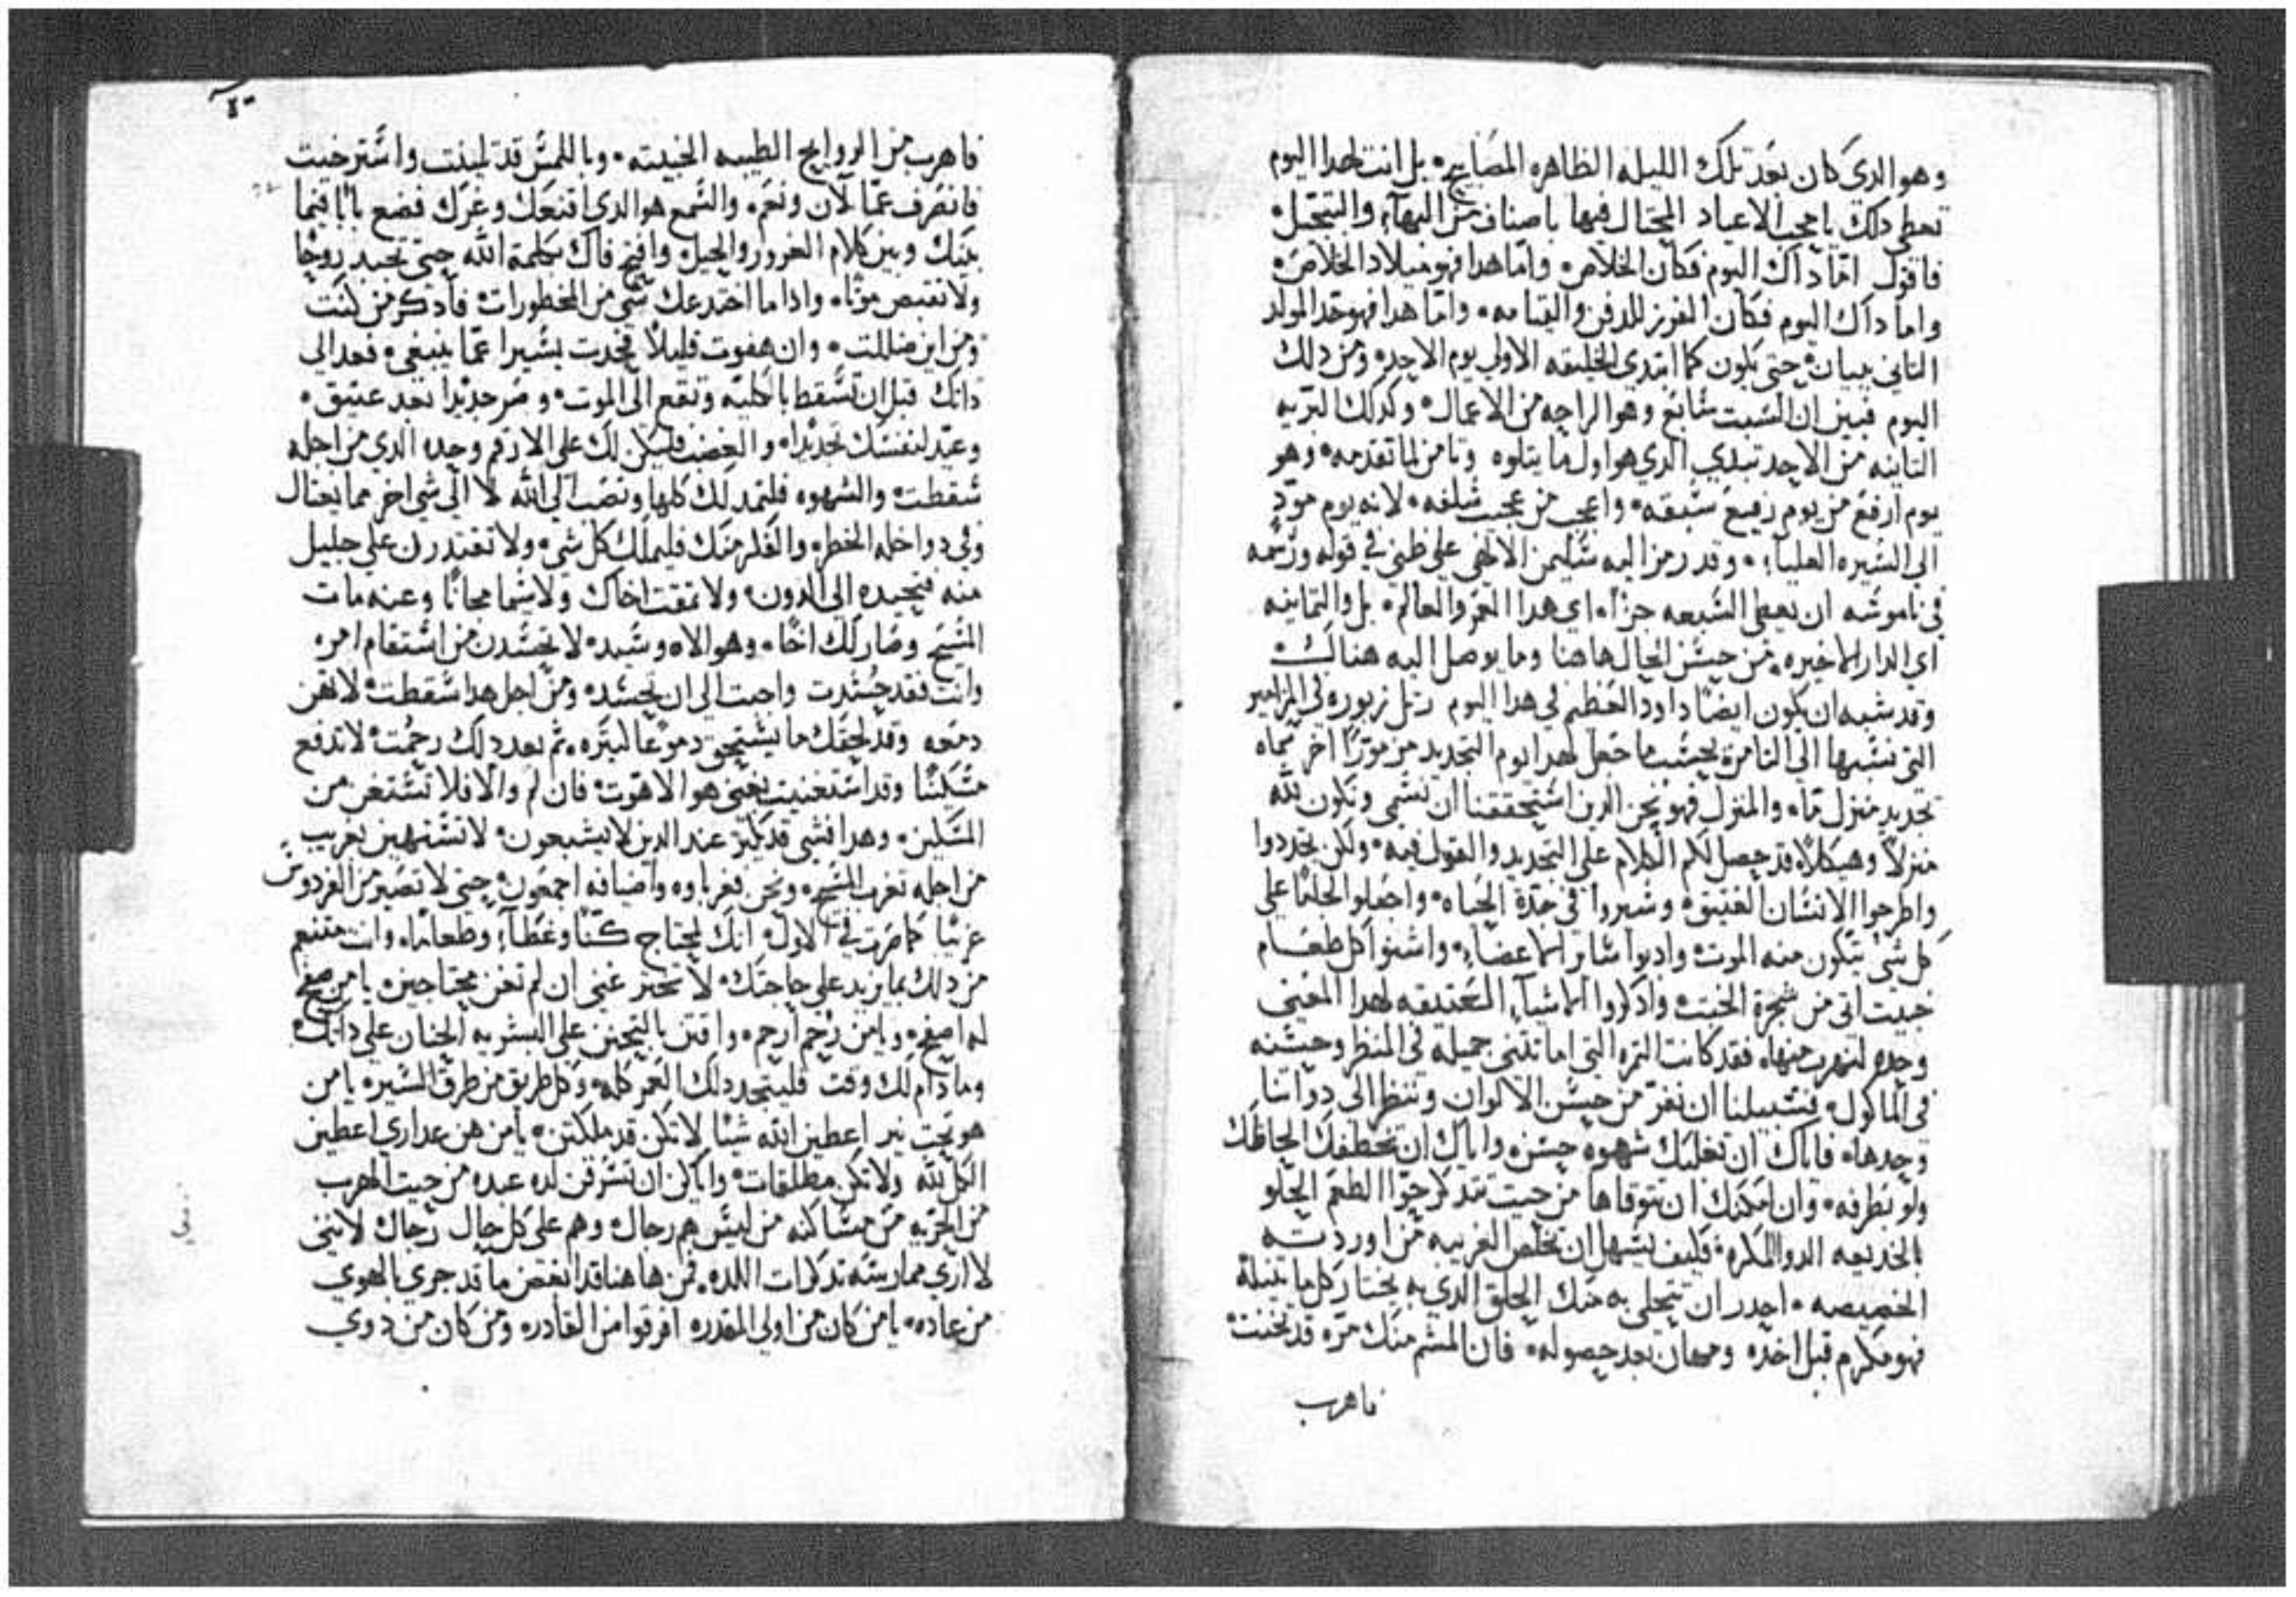 وهو الدي كان بعد تلك الليله الظاهره المصابيح٠ بل انت لهدا اليوم
تعطي دلك يا محب الاعياد المحتال فيها باصناف من البهآء والتبجيل٠
فاقول امّا داك اليوم فكان الخلاص٠ وامّا هدا فهو ميلاد الخلاص٠
واما داك اليوم فكان الفرز للدفن والقيامه٠ وامّا هدا فهو حد المولد
التاني ببيان٠ حتى يكون كما ابتدي الخليقه الاولي يوم الاحد٠ ومن دلك
اليوم فبين ان السبت سابع وهو الراحه من الاعمال٠ وكدلك البريه
التانيه من الاحد تبتدي الدي هو اول ما يتلوه وتامن لما تقدمه٠ وهو
يوم ارفع من يوم رفيع سبقه٠ واعجب من عجيب سلفه٠ لانه يوم مودٍ
الي السيره العلياء٠ وقد رمز اليه سليمن الالاهي علي ظني في قوله ورسمه
في ناموسه ان نعطي السبعه جزاً٠ اي هدا العمر والعالم٠ بل والتمانيه
اي الدار الاخيره٠ من حسن الحال هاهنا وما يوصل اليه هنالك٠
وقد شبه ان يكون ايضاً داود العظيم في هدا اليوم رتل زبوره في المزامير
التي نسبها الي التامرة بحسب ما جعل لهدا يوم التجديد مزموراً اخر سماه
تجديد منزل ما٠ والمنزل فهو نحن الدين استحققنا ان نسمي ونكون لله
منزلاً وهيكلاً٠ قد حصل لكم الكلام علي التجديد والقول فيه٠ ولكن تجددوا
واطرحوا الانسان العتيق٠ وسيروا في جدّة الحياه٠ واجعلوا لجاماً علي
كل شي يتكون منه الموت٠ وادبوا ساير الاعضاء٠ واشنوا كل طعام
خبيت اتي من شجرة الخبت٠ وادكروا الاشيآء العتيقه لهدا المعني
وحده لنهرب منها٠ فقد كانت التمره التي اماتتني جميله في المنظر وحسنه
في الماكول٠ فسبيلنا ان نفر من حسن الالوان وننظر الى دواتنا
وحدها٠ فاياك ان تغلبك شهوه حسن٠ واياك ان تخطفك الحاظك
ولو بطرفه٠ وان امكنك ان تتوقاها من حيت تتدكر حوا الطعم الحلو
بالخديعه الدوا المكره٠ فكيف يسهل ان تخلص الغريبه من اوردته
الخصيصه٠ احدر ان يتحلي به منك الحلق الدي به يختار كل ما يتيله
فهو مكرم قبل اخده ومهان بعد حصوله٠ فان المشم منك مره قد تخنت
فاهرب
فاهرب من الروايح الطيبه الخبيته٠ وباللمس قد تليّنت واسترخيت
فانصرف عمّا لان ونعم٠ والسمع هو الدي اقنعك وغرك فضع باباً فيما
بينك وبين كلام الغرور والحيل٠ وافتح فاك بكلمة الله حتى تجبد روحاً
ولا تقبض موتاً٠ وادا ما اختدعك شي من المحظورات٠ فادكر من كنت
ومن اين ضللت٠ وان هفوت قليلاً فحدت يسيرا عمّا ينبغي٠ فعد الي
داتك قبل ان تسقط بالكليّه وتقع الي الموت٠ وصر جديداً بعد عتيق٠
وعيّد لنفسك تجديداً٠ والغضب فليكن لك علي الارقم وحده الدي من اجله
سقطت٠ والشهوه فلتمد لك كلها وتنصب الي الله لا الي شي اخر مما يغتال
وفي دواخله الخطر٠ والفكر منك فليملك كل شي٠ ولا تقتدرن علي جليل
منه فتحيده الي الدون٠ ولا تمقت اخاك ولا سيما مجاناً وعنه مات
المسيح وصار لك اخاً٠ وهو الاه وسيد٠ لا تحسدن من استقام امره
وانت فقد حُسدت واجبت الي ان يحسد٠ ومن اجل هدا سقطت٠ لا تهن
دمعه وقد لحقك ما يستحق دموعاً ليتره٠ ثم بعد دلك رحمت٠ لا تدفع
مسكيناً وقد استغنيت بغني هو الاهوت٠ فان لم والا فلا تستغن من
المسكين٠ وهدا فشي قد يكبر عند الدين لا يشبعون٠ لا تستهين بغريب
من اجله تغرب المسيح٠ ونحن فغرباوه واضيافه اجمعون٠ حتى لا تصير من الفردوس
غريباً كما صرت في الاول٠ انك لمحتاج كنّاً وغطآء وطعاماً٠ وانت متنعم
من دلك بما يزيد علي حاجتك٠ لا تحتز غني ان لم تغن محتاجين٠ يا من صفح
له اصفح٠ ويا من رُحم ارحم٠ واقتن بالتحنن علي البشريه الحنان علي داتك٠
وما دام لك وقت فليتجدد لك العمر كله٠ وكل طريق من طرق السيره٠ يا من
هو تحت نير اعطين الله شيئا لا تكن قد ملكتن٠ يا من هن عداري اعطين
الكل لله ولا تكن مطلقات٠ واياكن ان تسرقن لده عبده من حيت الهرب
من الحريه من مساكنه من ليس هم رجالك وهم علي كل حال رجالك لانني
لا اري ممارسة تدكرات اللده٠ فمن هاهنا قد انقض ما قد جري بالهوي
من عاده٠ يا من كان من اولي المقدره افرقوا من القادره ومن كان من دوي